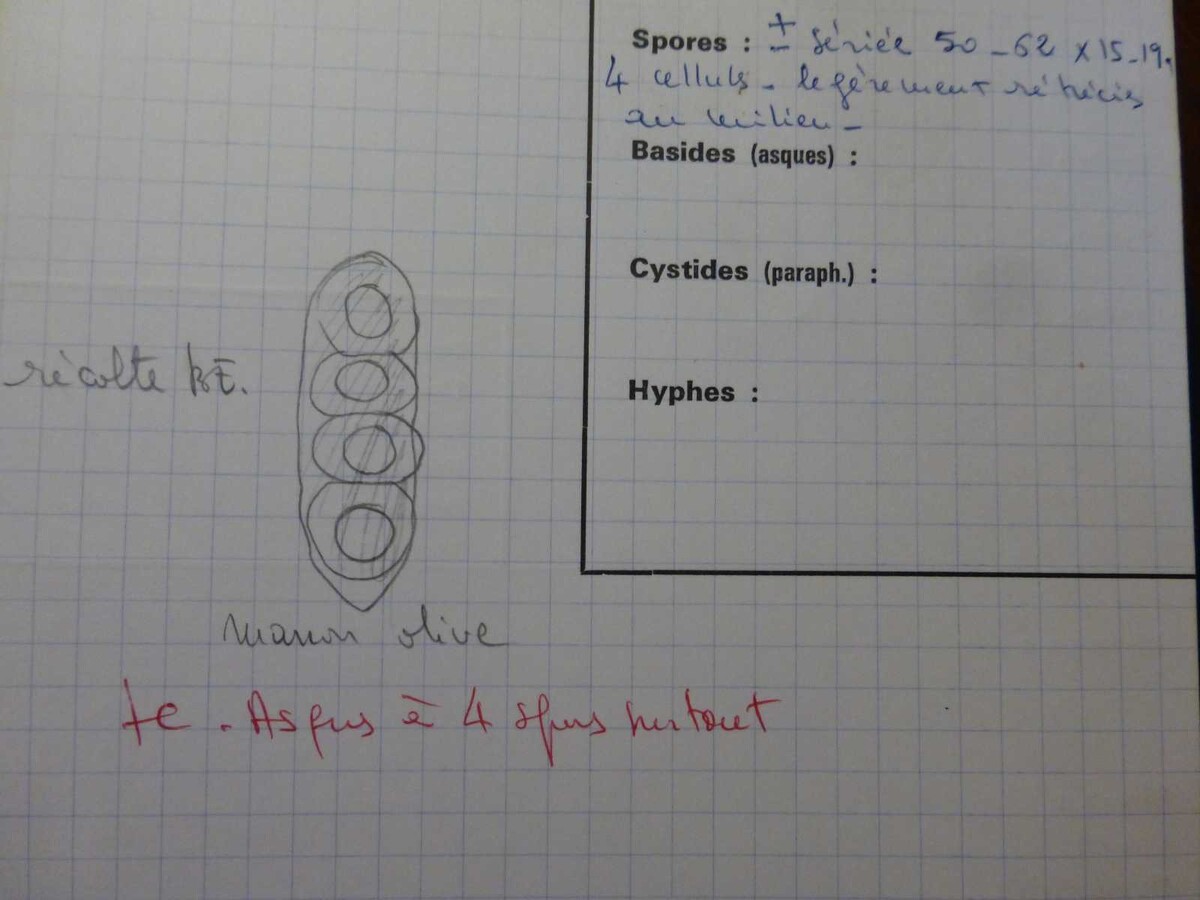 Spores : ± sériée 50-62 x 15-19.
4 cellules - légèrement rétrécies
au milieu -
Basides (asques) :
Cystides (paraph.) :
récolte BE.
Hyphes :
marron olive
te. Asques à 4 spores surtout